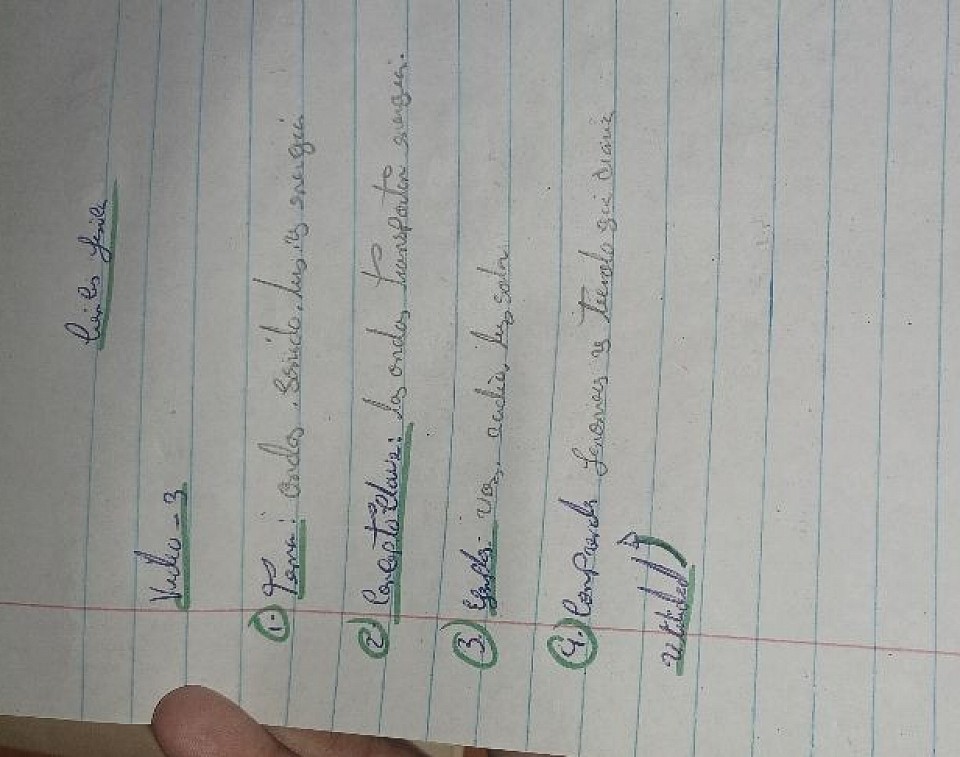 Video - 3
1. Tema: ondas, sonido, luz y energía
2. Concepto Clave: las ondas transportan energía.
3. Ejemplo: voz, radio, luz solar
4. Comprender fenómenos y tecnología diaria
utilidad